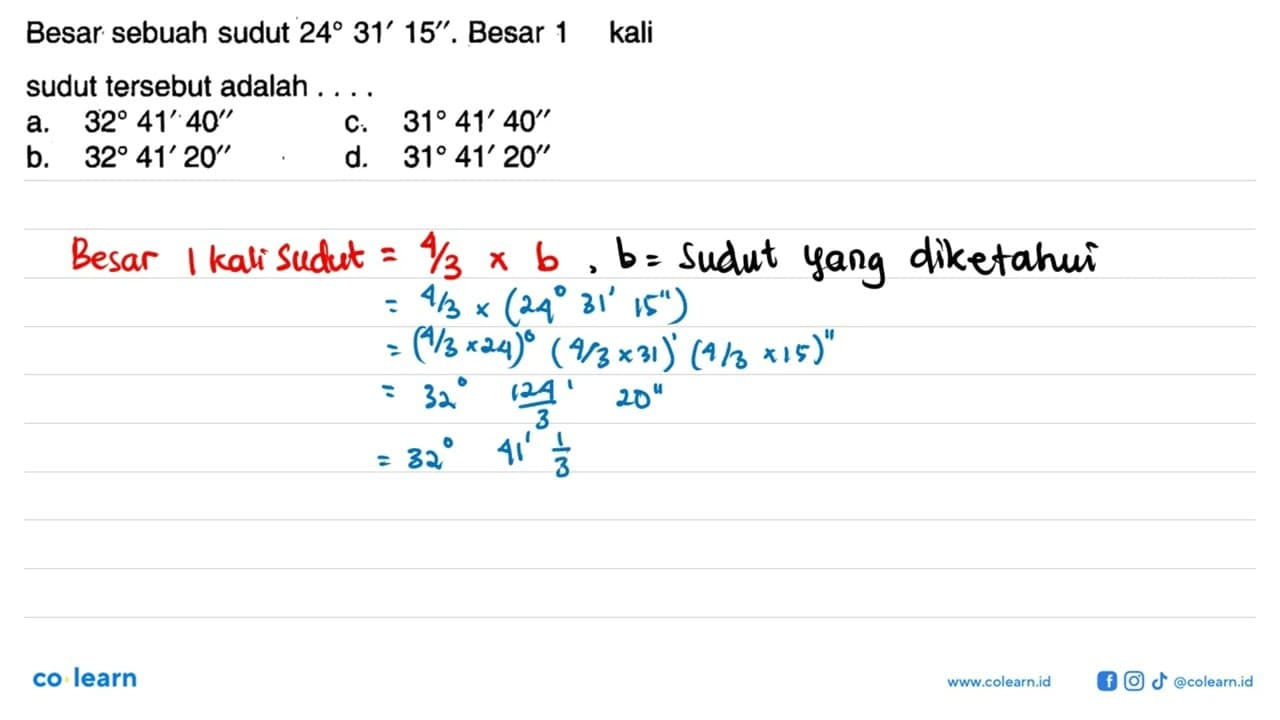 Besar sebuah sudut 24° 31′ 15″. Besar 1 kali
sudut tersebut adalah . . . .
a. 32° 41′ 40″ c. 31° 41′ 40″
b. 32° 41′ 20″ d. 31° 41′ 20″
Besar 1 kali sudut = 4/3 x b , b = sudut yang diketahui
= 4/3 x (24° 31' 15")
= (4/3 x 24)° (4/3 x 31)' (4/3 x 15)"
= 32° 124/3' 20"
= 32° 41' 1/3
co learn
www.colearn.id @colearn.id